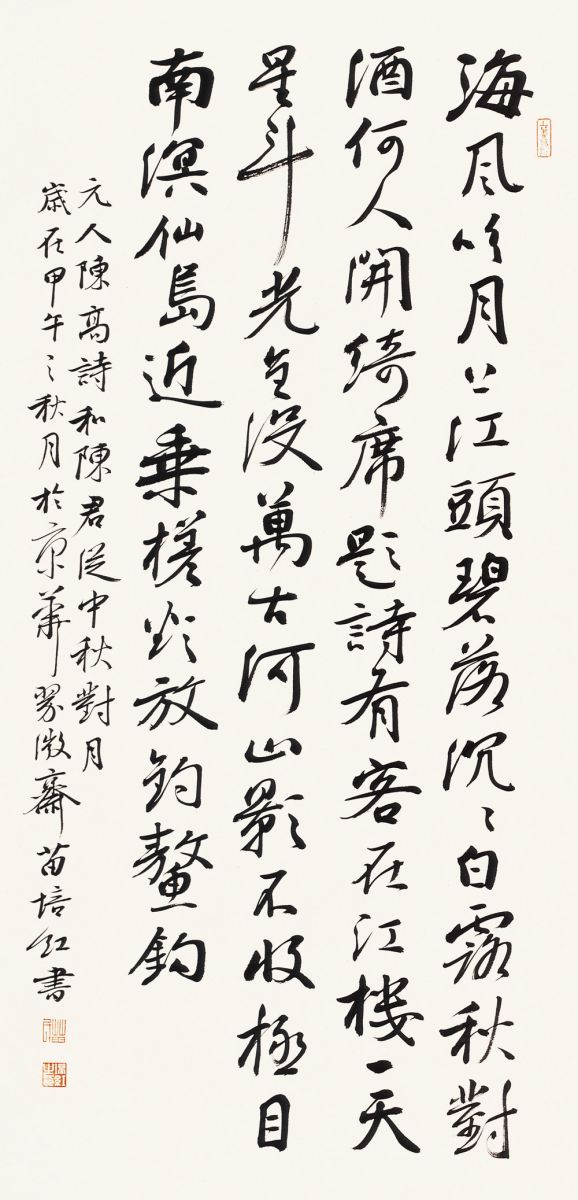 海風吹月上江頭碧落沉〻白露秋對
酒何人開綺席題詩有客在江樓一天
星斗光全没萬古河山影不收極目
南溟仙島近乘槎欲放釣鰲鈎
元人陳高詩和陳君從中秋對月
歲在甲午之秋月於京華翠微齋苗培紅書